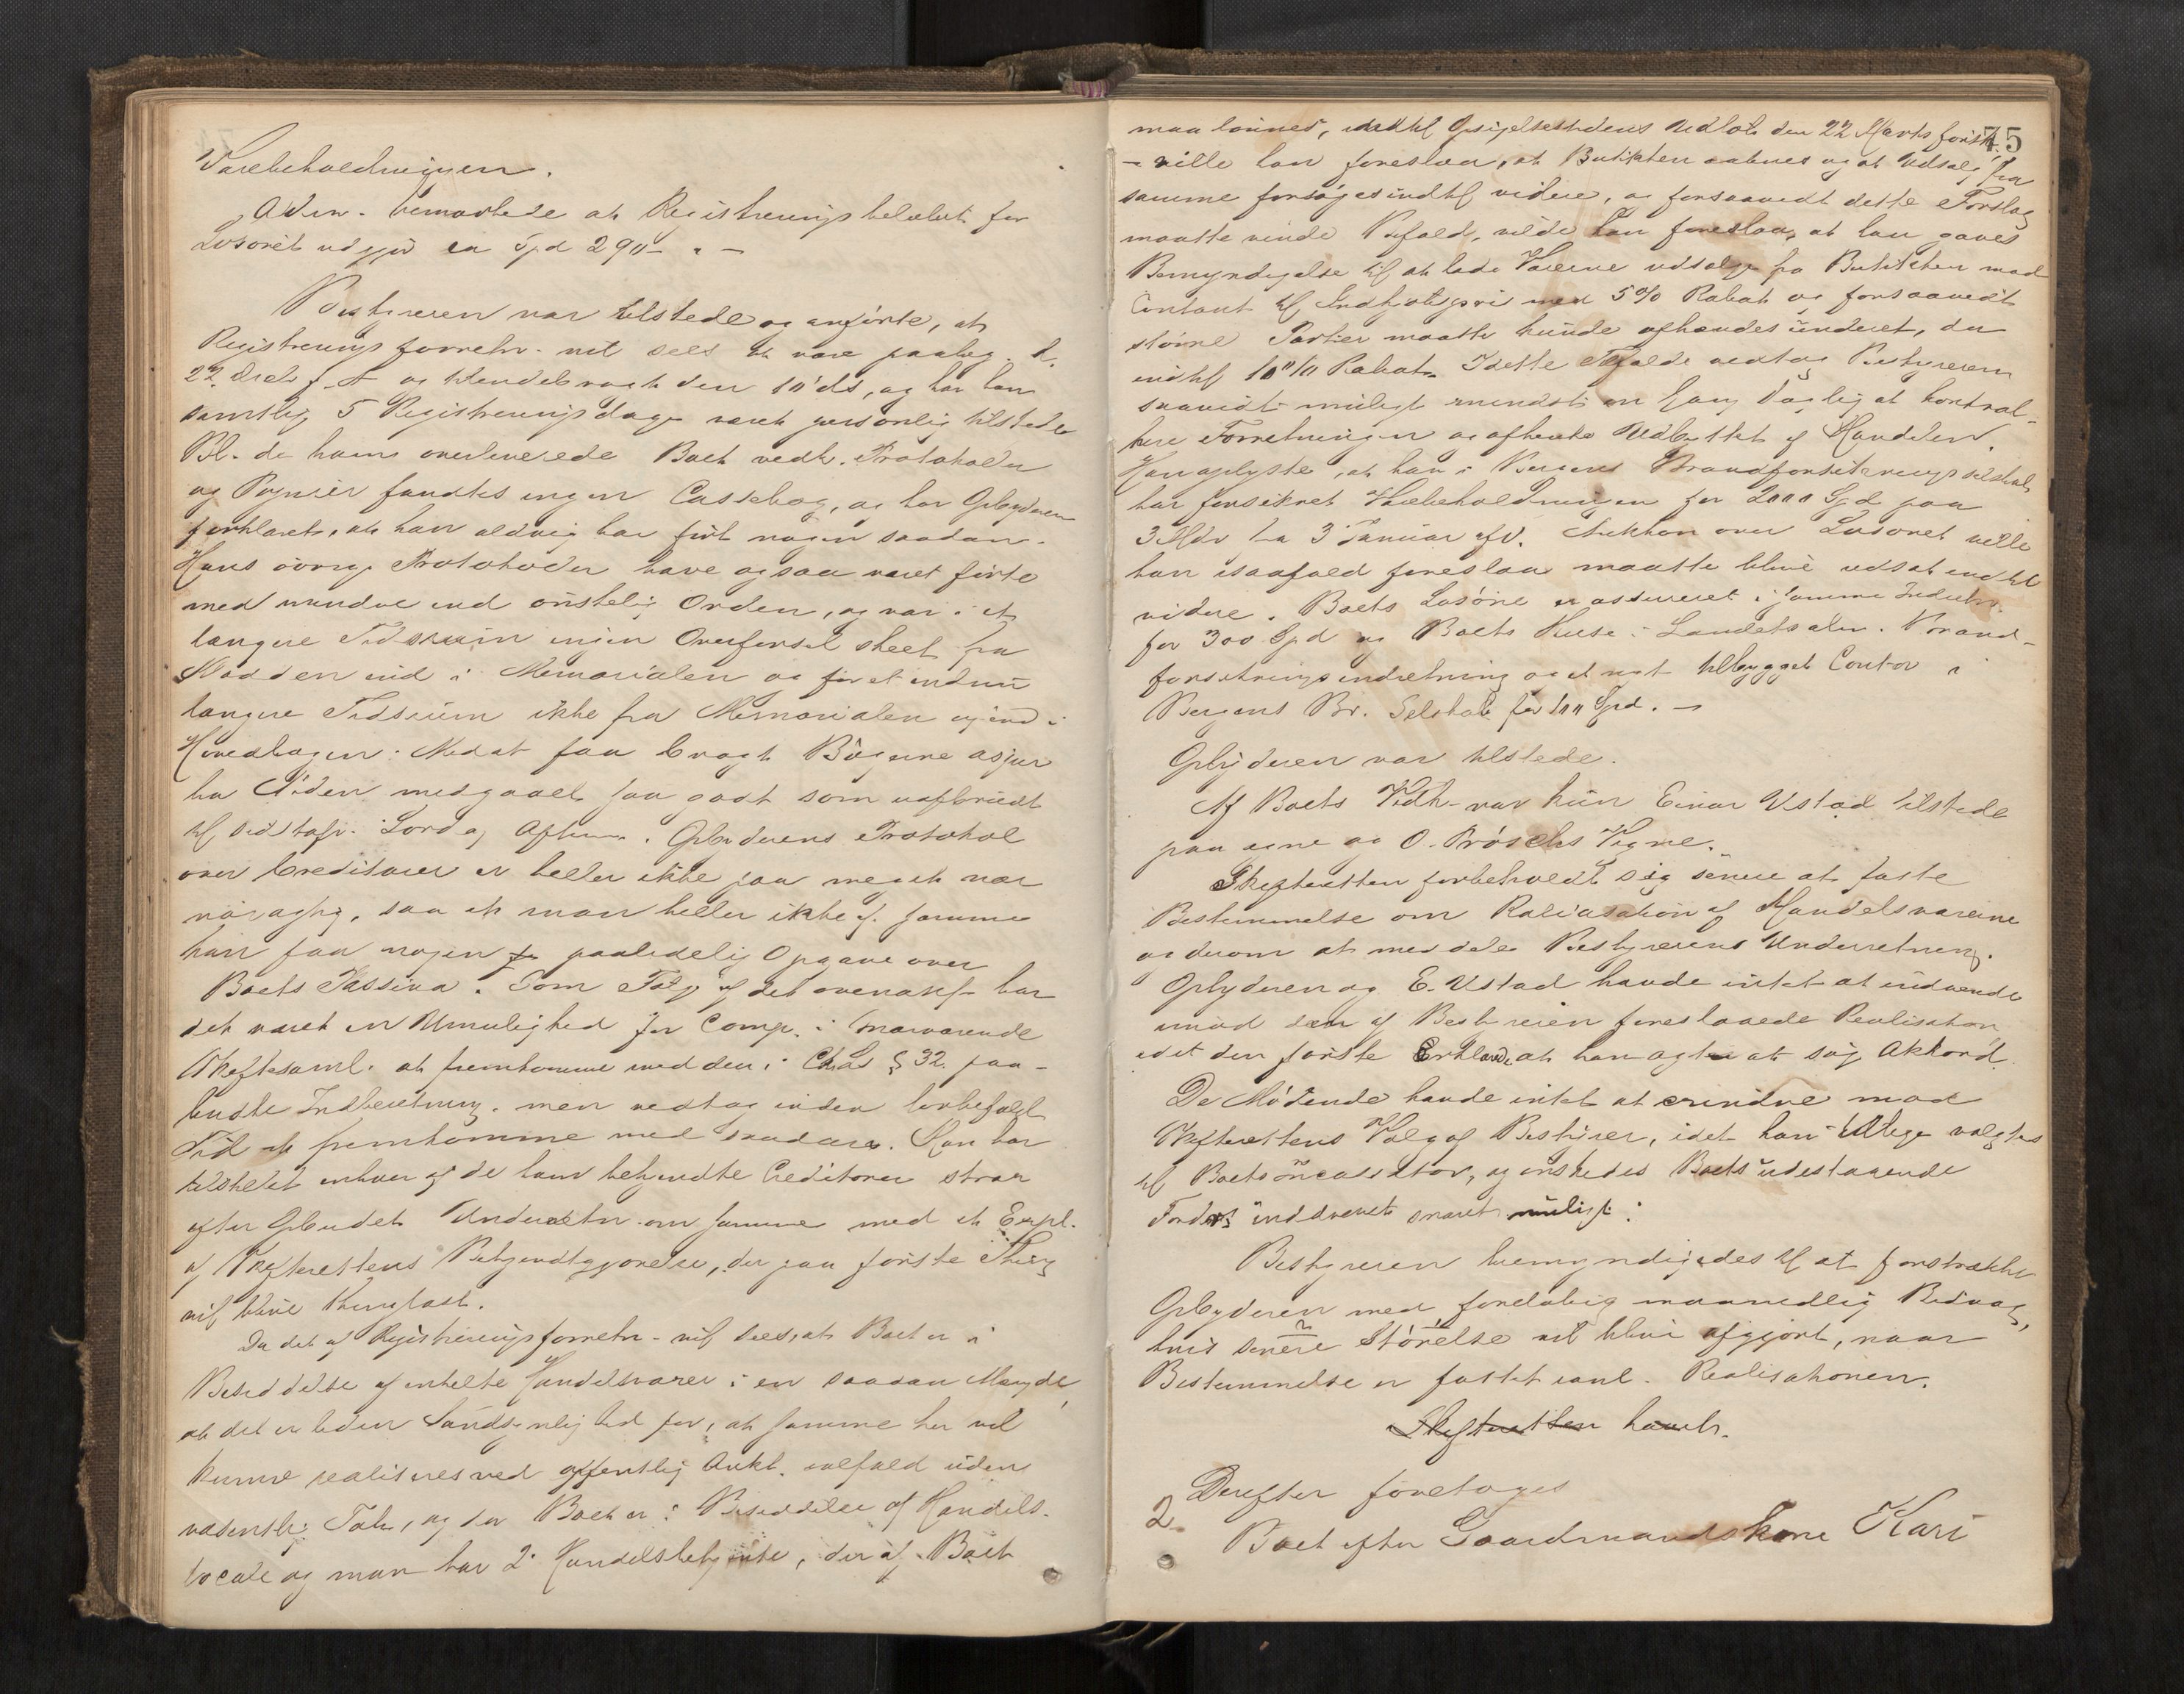 Varebeholdningen.
Adm. bemærkede at Registreringsbeløbet for
Løsøret udgjør ca Spd 290 - " -
Bestyreren var tilstede og anførte, at
Registrerings forretn. vil sees at være paabeg. d.
22 Decb f. A og tilendebragt den 10 ds, og har han
samtlig 5 Registreringsdage været personlig tilstede
Bl. de ham overleverede Boet vedk. Protokoller
og Papirer fandtes ingen Cassebog, og har Opbyderen
forklaret, at han aldrig har ført nogen saadan.
Hans øvrige Protokoller have ogsaa været førte
med mindre end ønskelig Orden, og var i et
længere Tidsrum ingen Overførsel skeet fra
Kladden ind i Memorialen og for et endnu
længere Tidsrum ikke fra Memorialen og ind i
Hovedbogen. Med at faa bragt Bøgerne ajour
har Tiden medgaaet saa godt som uafbrudt
til sidstafv. Lørdag Aften. Opbyderens Protokol
over Creditorer er heller ikke saa meget nær
nøiagtig, saa at man heller ikke af samme
kan faa nogen paalidelig Opgave over
Boets Passiva. Som Følge af det ovenanf. har
det været en Umulighed for Comp. i nærværende
Skiftesaml. at fremkomme med den i CL's § 32 paa-
budte Indberetning. men vedtog inden lovbefalet
Tid at fremkomme med saadan. Han har
tilskrevet enhver af de ham bekjendte Creditorer strax
efter Opbudet Underretn. om samme med et Expl.
af Skifterettens Bekjendtgjørelse, der paa første Thing
vil blive thinglæst.
Da det af Registreringsforretn. vil sees, at Boet er i
Besiddelse af enkelte Handelsvarer i en saadan Mængde,
at det er liden Sandsynlighed for, at samme her vil
kunne realiseres ved offentlig Aukt. ialfald uden
væsentlig Tab, og da Boet er i Besiddelse af Handels-
locale og man har 2 Handelsbetjente, der af Boet
75
maa lønnes, indtil Opsigelsestidens Udløb den 22 Marts førstk.
- ville han foreslaa, at Butikken aabnes og at Udsalg fra
samme forsøges indtil videre, og forsaavidt dette Forslag
maatte vinde Bifald, vilde han foreslaa, at han gaves
Bemyndigelse til at lade Varerne udsælge fra Butikken mod
Contant til Indkjøbspris med 5% Rabat og forsaavidt
større Partier maatte kunde afhændes underet, da
indtil 10% Rabat. I dette Tilfælde vedtog Bestyreren
saavidt muligt mindst en Gang daglig at kontrol-
lere Forretningen og afhente Udbyttet af Handelen.
Han oplyste, at han i Bergens Brandforsikringsselskab
har forsikret Varebeholdningen for 2000 Spd paa
3 Mdr fra 3 Januar afv. Auktion over Løsøret ville
han isaafald foreslaa maatte blive udsat indtil
videre. Boets Løsøre er assureret i samme Indretn.
for 300 Spd og Boets Huse i Landets alm. Brand-
forsikringsindretning og et nyt tilbygget Contor i
Bergens Br. Selskab for 100 Spd. -
Opbyderen var tilstede.
Af Boets Vedk. var kun Einar Ustad tilstede
paa egne og O. Brøschs Vegne.
Skifteretten forbeholdt sig senere at fatte
Bestemmelse om Realisation af Handelsvarerne
og derom at meddele Bestyreren Underretning.
Opbyderen og E. Ustad havde intet at indvende
imod den af Bestyreren foreslaaede Realisation
idet den første Erklærede at han agter at søge Akkord.
De Mødende havde intet at erindre mod
Skifterettens Valg af Bestyrer, idet han tillige valgtes
til Boets incassator, og ønskedes Boets udestaaende
Fordrs inddrevet snarest muligt.
Bestyreren bemyndigedes til at forstrække
Opbyderen med foreløbig maanedlig Bidrag,
hvis senere Størrelse vil blive afgjort, naar
Bestemmelse er fattet ianl. Realisationen.
Skifteretten hævet.
Derefter foretoges
2. Boet efter Gaardmandskone Kari